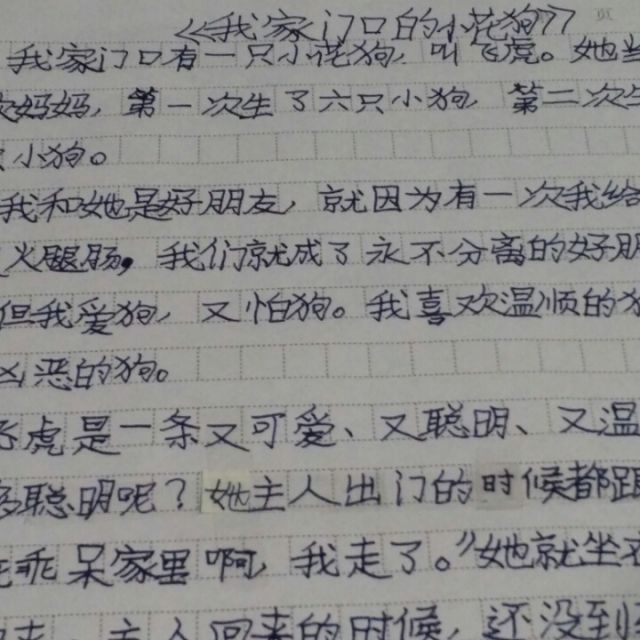 《我家门口的小花狗》 页
我家门口有一只小花狗，叫飞虎。她当
妈妈，第一次生了六只小狗，第二次生
小狗。
我和她是好朋友，就因为有一次我给
火腿肠，我们就成了永不分离的好朋
但我爱狗，又怕狗。我喜欢温顺的狗
凶恶的狗。
飞虎是一条又可爱、又聪明、又温
聪明呢？她主人出门的时候都跟
乖呆家里啊，我走了。”她就坐在
主人回来的时候，还没到